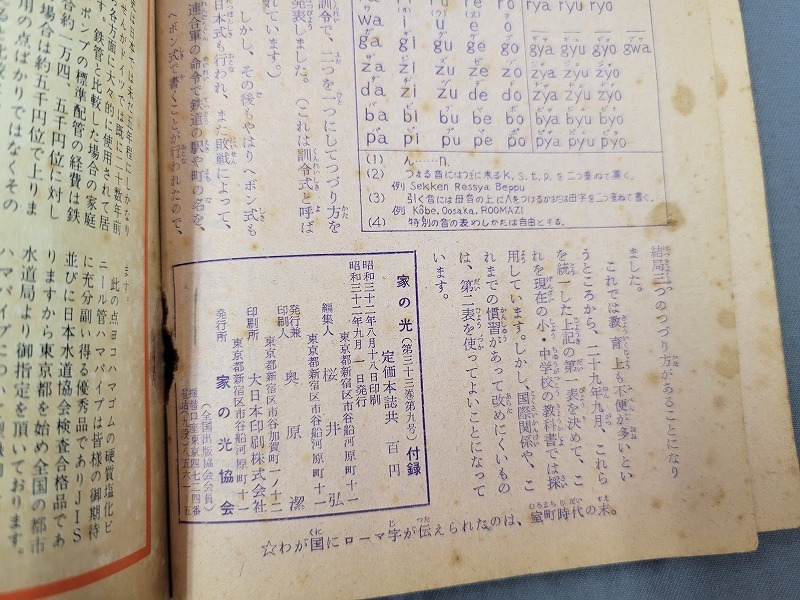 ryu ryo
wa i u e o
ga gi gu ge go gya gyu gyo gwa
za zi zu ze zo zya zyu zyo
da zi zu de do zya zyu zyo
ba bi bu be bo bya byu byo
pa pi pu pe po pya pyu pyo
(1) ん……n.
(2) つまる音にはつぎに来るk, s, t, p, を二つ重ねて書く。
例 Sekken Ressya Beppu
(3) 引く音には母音の上に∧をつけるかまたは母字を二つ重ねて書く。
例 Kôbe, Oosaka, ROOMAZI
(4) 特別の音の表わしかたは自由とする。
訓令で、二つを一つにしてつづり方を
発表しました。（これは訓令式と呼ば
れています。）
しかし、その後もやはりヘボン式も
日本式も行われ、また敗戦によって、
連合軍の命令で鉄道の駅や町の名を、
ヘボン式で書くことが行われたので、
結局三つのつづり方があることになり
ました。
これでは教育上も不便が多いとい
うところから、二十九年九月、これら
を統一した上記の第一表を決めて、こ
れを現在の小・中学校の教科書では採
用しています。しかし、国際関係や、こ
れまでの慣習があって改めにくいもの
は、第二表を使ってよいことになって
います。
家の光（第三十三巻第九号）付録
定価本誌共 百円
昭和三十二年八月十八日印刷
昭和三十二年九月一日発行
東京都新宿区市谷船河原町十一
編集人 桜井弘
東京都新宿区市谷船河原町十一
発行兼印刷人 奥原潔
東京都新宿区市谷加賀町一ノ十二
印刷所 大日本印刷株式会社
東京都新宿区市谷船河原町十一
発行所 家の光協会
（全国出版協会会員）
☆わが国にローマ字が伝えられたのは、
室町時代の末。
ドイツでは既に二十数年前
各方面に大々的に使用されて居
す。鉄管と比較した場合の家庭
ポンプの標準配管の経費は鉄
合約一万四、五千円位に対し
場合は約五千円位で上りま
用の点ばかりではなくその
ます
此の点ヨコハマゴムの硬質塩化ビ
ニール管ハマパイプは皆様の御期待
に充分副い得る優秀品でありJIS
並びに日本水道協会検査合格品であ
りますから東京都を始め全国の都市
水道局より御指定を頂いております。